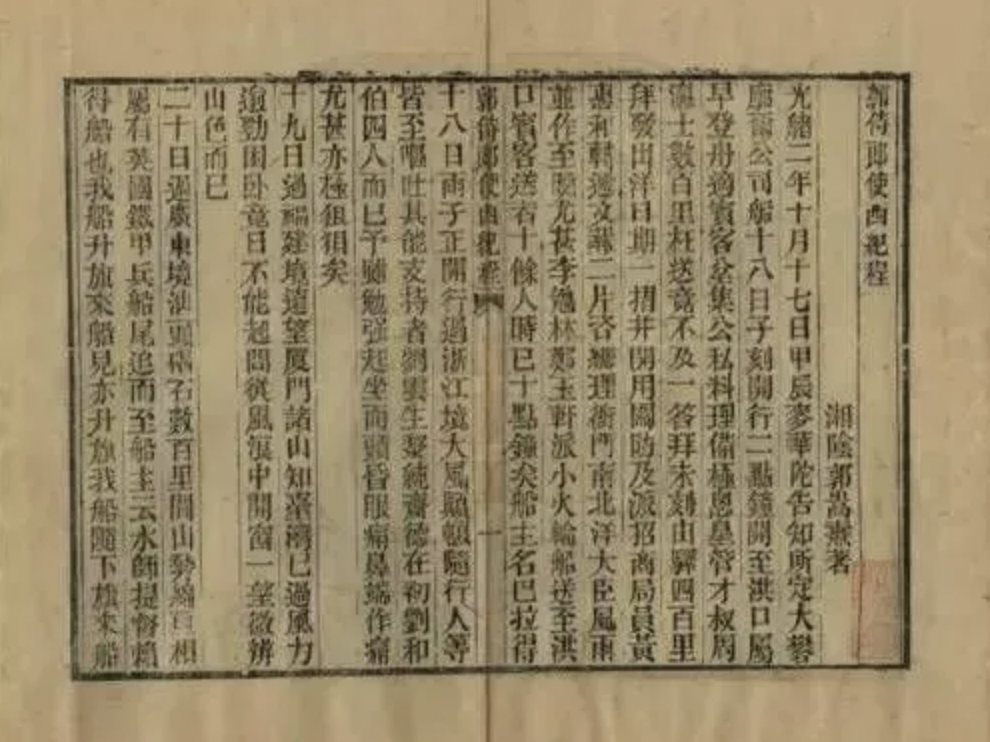 郭侍郎使西紀程
湘陰郭嵩燾著
光緒二年十月十七日甲辰麥華陀告知所定大礬
廉爾公司船十八日子刻開行二點鐘開至洪口屬
早登舟適賓客坌集公私料理備極悤皇管才叔周
瀛士數百里枉送竟不及一答拜未刻由驛四百里
拜發出洋日期一摺并開用關防及派招商局員黃
惠和轉遞文報二片咨總理衙門南北洋大臣風雨
並作至晚尤甚李勉林鄭玉軒派小火輪船送至洪
口賓客送者十餘人時已十點鐘矣船主名巴拉得
郭侍郎使西紀程 一
十八日雨子正開行過浙江境大風顛頓隨行人等
皆至嘔吐其能支持者劉雲生黎純齋德在初劉和
伯四人而已予雖勉强起坐而頭昏眼痛鼻端作痛
尤甚亦極狼狽矣
十九日過福建境遠望厦門諸山知臺灣已過風力
逾勁困卧竟日不能起間從風浪中開窗一望微辨
山色而已
二十日過廣東境汕頭碣石數百里間山勢綿亘相
屬有英國鐵甲兵船尾追而至船主云水師提督賴
得船也我船升旗來船見亦升旗我船隨下旗來船